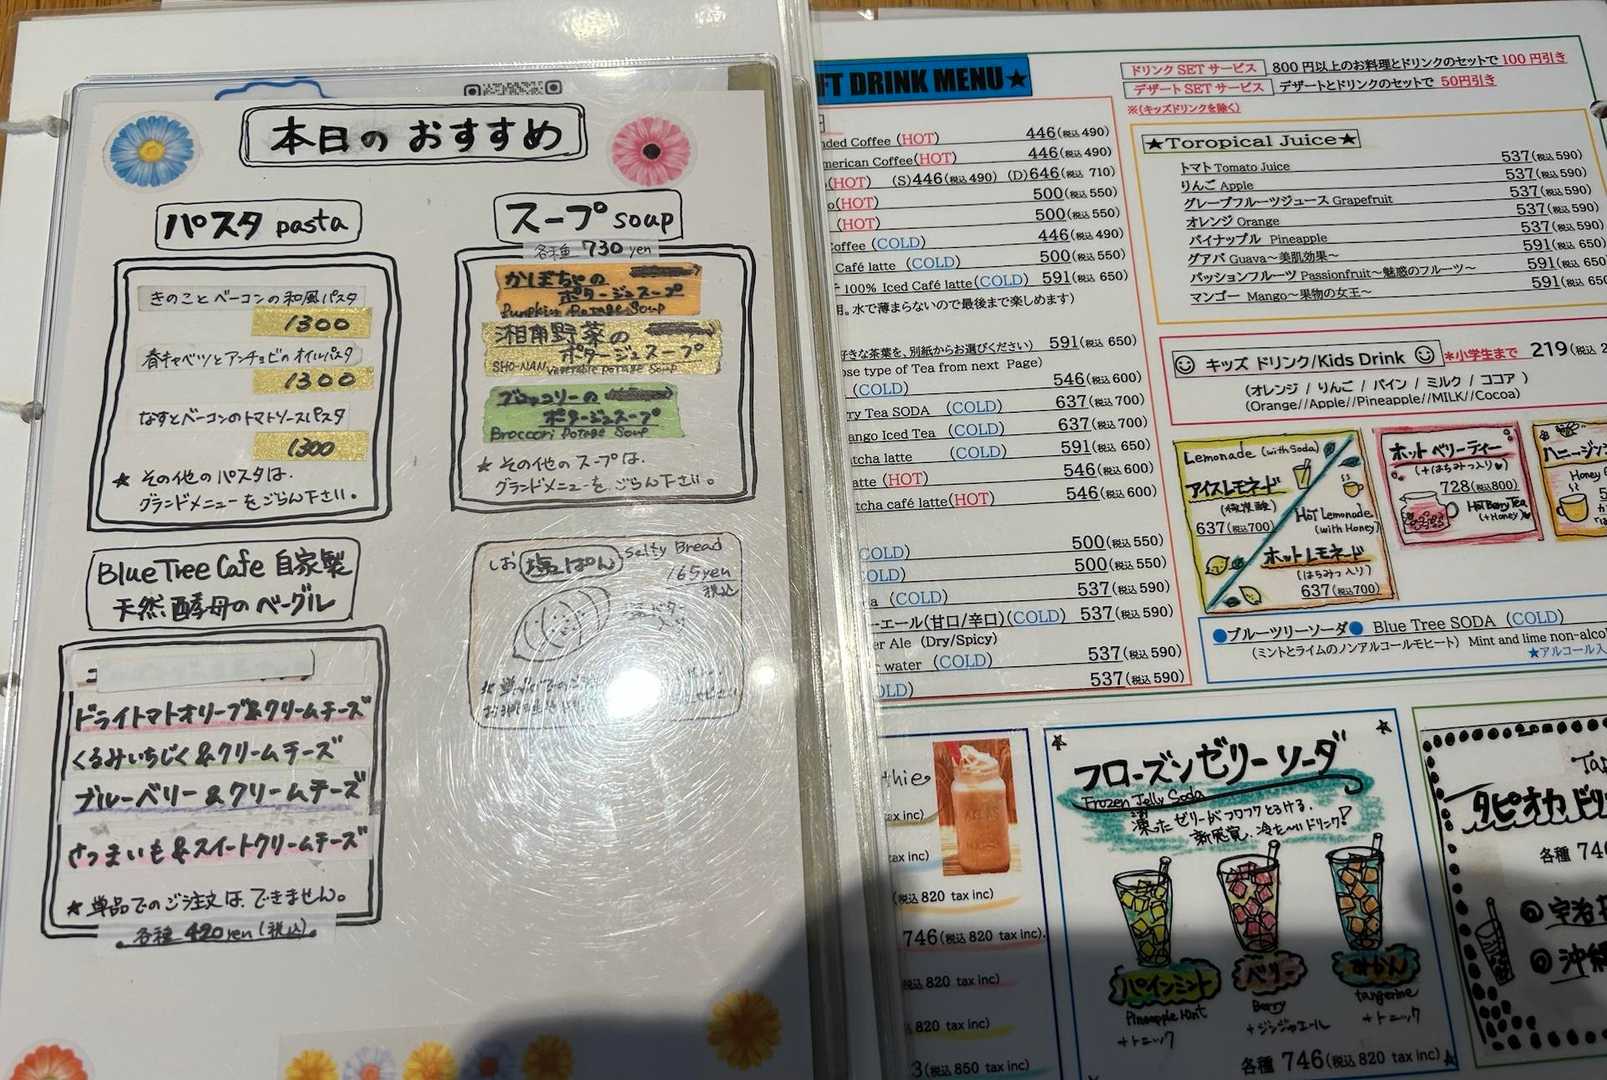 本日の おすすめ
パスタ pasta
きのことベーコンの和風パスタ
1300
春キャベツとアンチョビのオイルパスタ
1300
なすとベーコンのトマトソースパスタ
1300
★ その他のパスタは、
グランドメニューをごらん下さい。
スープ soup
各種 730 yen
かぼちゃの
ポタージュスープ
Pumpkin Potage Soup
湘南野菜の
ポタージュスープ
SHO-NAN Vegetable Potage Soup
ブロッコリーの
ポタージュスープ
Broccori Potage Soup
★ その他のスープは、
グランドメニューをごらん下さい。
Blue Tree Cafe 自家製
天然酵母のベーグル
ドライトマトオリーブ&クリームチーズ
くるみいちじく&クリームチーズ
ブルーベリー&クリームチーズ
さつまいも&スイートクリームチーズ
★ 単品でのご注文は、できません。
各種 420 yen (税込)
しお 塩ぱん Salty Bread
165yen
税込
FT DRINK MENU★
ドリンク SET サービス 800 円以上のお料理とドリンクのセットで 100 円引き
デザート SET サービス デザートとドリンクのセットで 50円引き
※(キッズドリンクを除く)
nded Coffee (HOT) 446(税込 490)
merican Coffee (HOT) 446(税込 490)
(HOT) (S)446(税込 490) (D)646(税込 710)
o(HOT) 500(税込 550)
(HOT) 500(税込 550)
Coffee (COLD) 446(税込 490)
Café latte (COLD) 500(税込 550)
100% Iced Café latte(COLD) 591(税込 650)
用。水で薄まらないので最後まで楽しめます)
好きな茶葉を、別紙からお選びください) 591(税込 650)
ose type of Tea from next Page)
(COLD) 546(税込 600)
ry Tea SODA (COLD) 637(税込 700)
ango Iced Tea (COLD) 637(税込 700)
tcha latte (COLD) 591(税込 650)
atte (HOT) 546(税込 600)
tcha café latte(HOT) 546(税込 600)
COLD) 500(税込 550)
OLD) 500(税込 550)
a (COLD) 537(税込 590)
ーエール(甘口/辛口)(COLD) 537(税込 590)
er Ale (Dry/Spicy)
water (COLD) 537(税込 590)
LD) 537(税込 590)
★Toropical Juice★
トマト Tomato Juice 537(税込 590)
りんご Apple 537(税込 590)
グレープフルーツジュース Grapefruit 537(税込 590)
オレンジ Orange 537(税込 590)
パイナップル Pineapple 537(税込 590)
グアバ Guava～美肌効果～ 591(税込 650)
パッションフルーツ Passionfruit～魅惑のフルーツ～ 591(税込 650)
マンゴー Mango～果物の女王～ 591(税込 650
キッズ ドリンク/Kids Drink *小学生まで 219(税込 2
(オレンジ / りんご / パイン / ミルク / ココア )
(Orange//Apple//Pineapple//MILK//Cocoa)
Lemonade (with Soda)
アイスレモネード
(微炭酸)
637(税込700)
Hot Lemonade
(with Honey)
ホットレモネード
(はちみつ入り)
637(税込700)
ホットベリーティー
(+はちみつ入り♥)
728(税込800)
Hot Berry Tea
(+Honey)
ハニージンジ
Honey
●ブルーツリーソーダ● Blue Tree SODA (COLD)
(ミントとライムのノンアルコールモヒート) Mint and lime non-alco
★アルコール入
thie
税込
tax inc)
(税込 820 tax inc)
746(税込 820 tax inc).
税込 820 tax inc)
820 tax inc)
3(税込 850 tax inc)
フローズンゼリーソーダ
Frozen Jelly Soda
凍ったゼリーがフワフワとろける、
新感覚、冷た～いドリンク!
パインミント
Pineapple Mint
+トニック
ベリー
Berry
+ジンジャエール
みかん
tangerine
+トニック
各種 746(税込 820 tax inc)
Tap
タピオカドリ
各種 746
宇治
沖縄